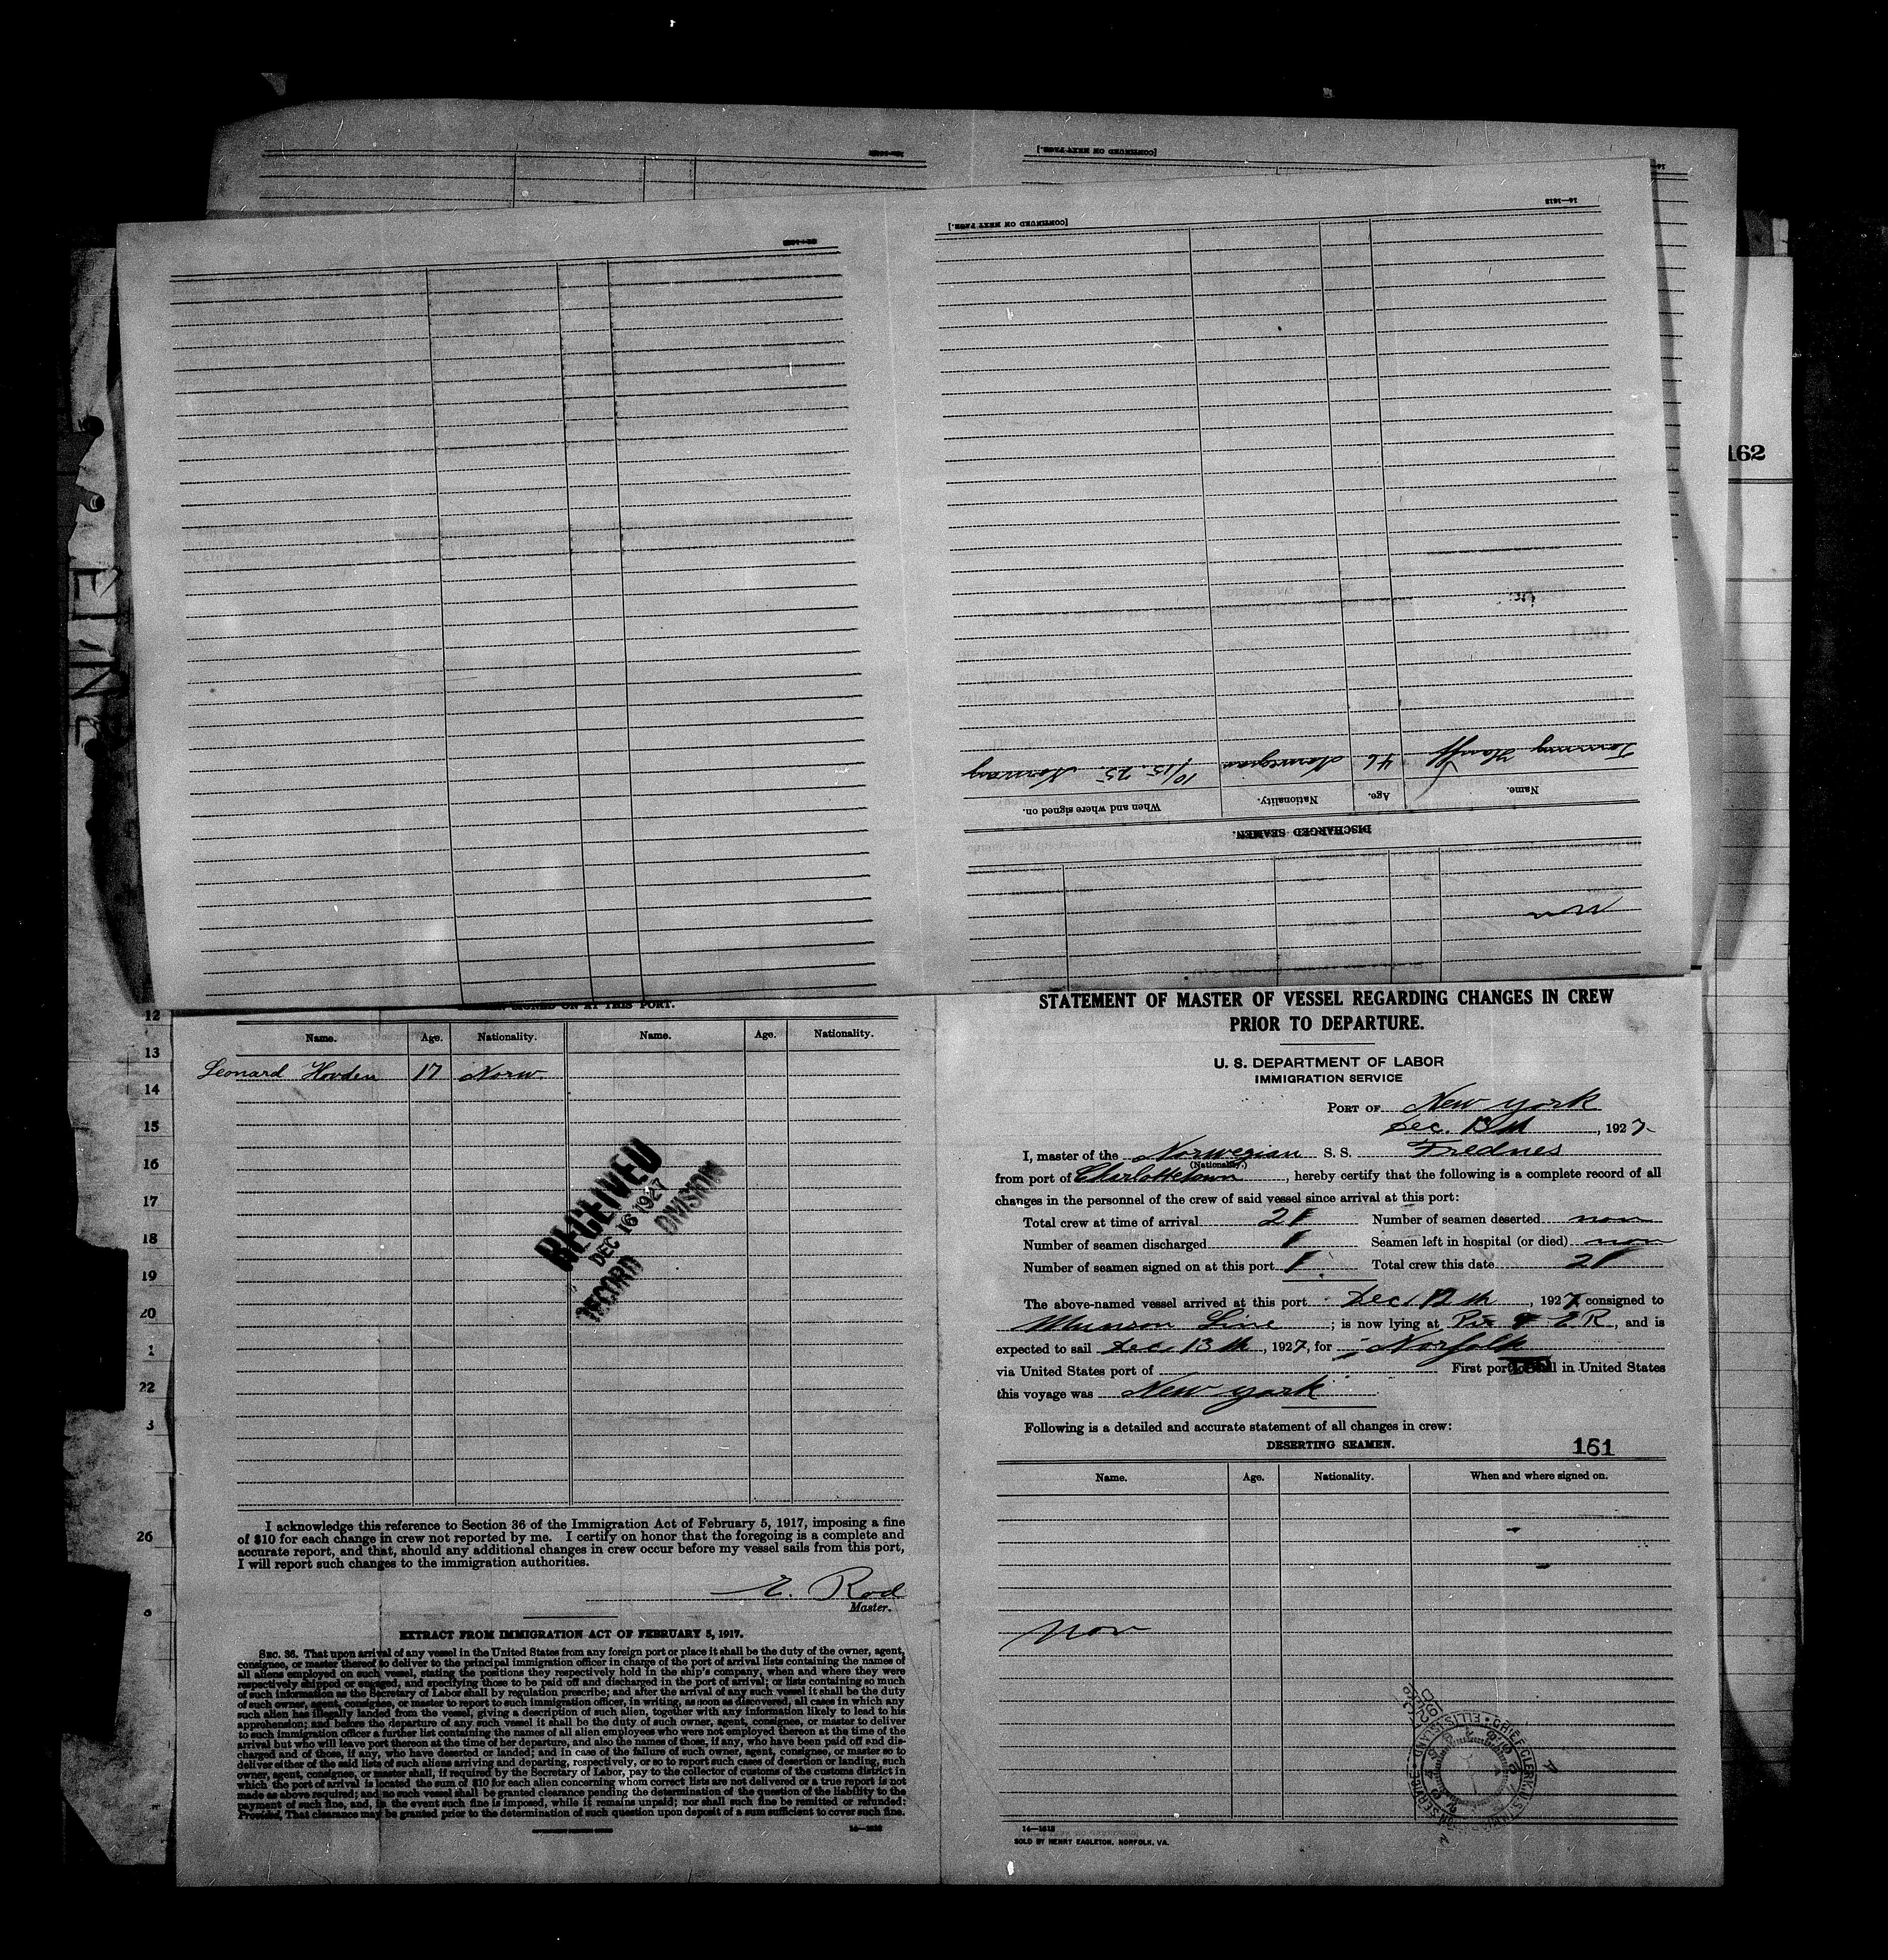 [CONTINUED ON NEXT PAGE.]
[CONTINUED ON NEXT PAGE.]
14—1613
162
Norway
10/15. 25.
Norwegian
46
When and where signed on.
Nationality.
Age.
Name.
DISCHARGED SEAMEN.
SIGNED ON AT THIS PORT.
Name.
Age.
Nationality.
Name.
Age.
Nationality.
Leonard Hovden 17 Norw.
12
13
14
15
16
17
18
19
20
1
22
3
26
RECEIVED
DEC 16 1927
RECORD DIVISION
I acknowledge this reference to Section 36 of the Immigration Act of February 5, 1917, imposing a fine
of $10 for each change in crew not reported by me. I certify on honor that the foregoing is a complete and
accurate report, and that, should any additional changes in crew occur before my vessel sails from this port,
I will report such changes to the immigration authorities.
E. Rod
Master.
EXTRACT FROM IMMIGRATION ACT OF FEBRUARY 5, 1917.
SEC. 36. That upon arrival of any vessel in the United States from any foreign port or place it shall be the duty of the owner, agent,
consignee, or master thereof to deliver to the principal immigration officer in charge of the port of arrival lists containing the names of
all aliens employed on such vessel, stating the positions they respectively hold in the ship's company, when and where they were
respectively shipped or engaged, and specifying those to be paid off and discharged in the port of arrival; or lists containing so much
of such information as the Secretary of Labor shall by regulation prescribe; and after the arrival of any such vessel it shall be the duty
of such owner, agent, consignee, or master to report to such immigration officer, in writing, as soon as discovered, all cases in which any
such alien has illegally landed from the vessel, giving a description of such alien, together with any information likely to lead to his
apprehension; and before the departure of any such vessel it shall be the duty of such owner, agent, consignee, or master to deliver
to such immigration officer a further list containing the names of all alien employees who were not employed thereon at the time of the
arrival but who will leave port thereon at the time of her departure, and also the names of those, if any, who have been paid off and dis-
charged and of those, if any, who have deserted or landed; and in case of the failure of such owner, agent, consignee, or master so to
deliver either of the said lists of such aliens arriving and departing, respectively, or so to report such cases of desertion or landing, such
owner, agent, consignee, or master shall, if required by the Secretary of Labor, pay to the collector of customs of the customs district in
which the port of arrival is located the sum of $10 for each alien concerning whom correct lists are not delivered or a true report is not
made as above required; and no such vessel shall be granted clearance pending the determination of the question of the liability to the
payment of such fine, and, in the event such fine is imposed, while it remains unpaid; nor shall such fine be remitted or refunded:
Provided, That clearance may be granted prior to the determination of such question upon deposit of a sum sufficient to cover such fine.
STATEMENT OF MASTER OF VESSEL REGARDING CHANGES IN CREW
PRIOR TO DEPARTURE.
U. S. DEPARTMENT OF LABOR
IMMIGRATION SERVICE
PORT OF New York
Dec. 13th, 1927
I, master of the Norwegian S. S. Frednes
(Nationality.)
from port of Charlottetown, hereby certify that the following is a complete record of all
changes in the personnel of the crew of said vessel since arrival at this port:
Total crew at time of arrival 21 Number of seamen deserted non
Number of seamen discharged 1 Seamen left in hospital (or died) non
Number of seamen signed on at this port 1 Total crew this date 21
The above-named vessel arrived at this port Dec. 12th, 1927, consigned to
Munson Line; is now lying at Pier 9 E.R, and is
expected to sail Dec. 13th, 1927, for Norfolk
via United States port of First port of call in United States
this voyage was New York
Following is a detailed and accurate statement of all changes in crew:
DESERTING SEAMEN.
161
Name.
Age.
Nationality.
When and where signed on.
non
14—1613
SOLD BY HENRY EAGLETON, NORFOLK, VA.